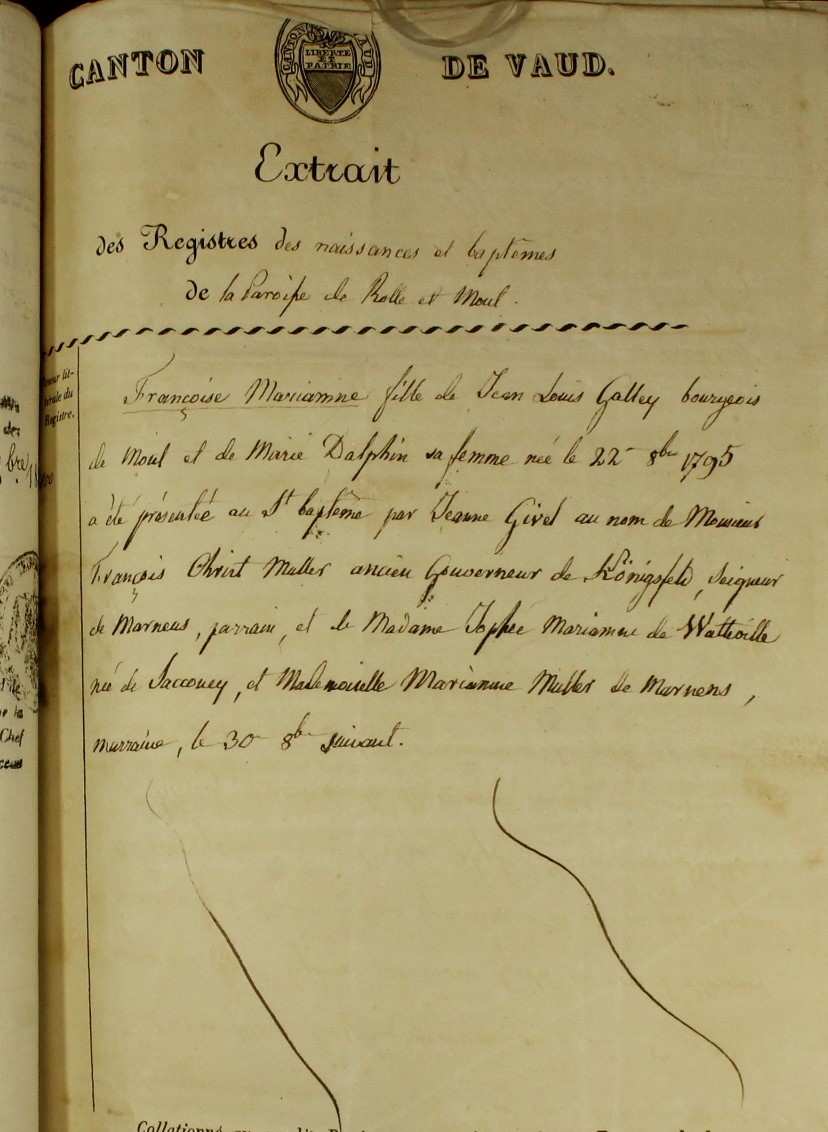 CANTON DE VAUD.
CANTON VAUD
LIBERTÉ
ET
PATRIE
Extrait
des Registres des naissances et baptêmes
de la Paroisse de Rolle et Mont.
Teneur lit-
térale du
Registre.
Françoise Marianne fille de Jean Louis Galley bourgeois
de Mont et de Marie Dalphin sa femme née le 22e 8bre 1795
a été présentée au St baptême par Jeanne Givel au nom de Monsieur
François Christ Muller ancien Gouverneur de Königsfeld, Seigneur
de Marnens, parrain, et de Madame Sophie Marianne de Watteville
née de Sacconey, et Mademoiselle Marianne Muller de Marnens,
marraine, le 30e 8bre suivant.
bre
la
Chef
Collationné